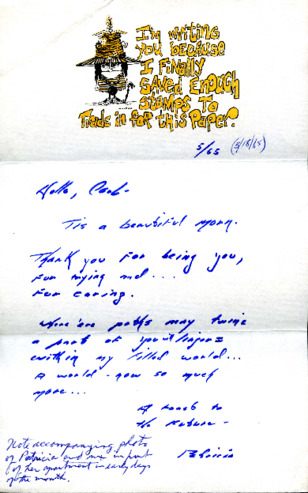 I'm writing
you because
I Finally
saved Enough
Stamps To
Trade in for this Paper!
5/65 (5/15/65)
Hello, Carl-
Tis a beautiful morn.
Thank you for being you,
for
For caring.
Where'ere paths may twine
a part of you'll linger
within my filled world...
a world - now so much
more...
A toast to
the Future -
Patricia
Note accompanying photo
of Patricia and me in front
of her apartment in early days
of the month.